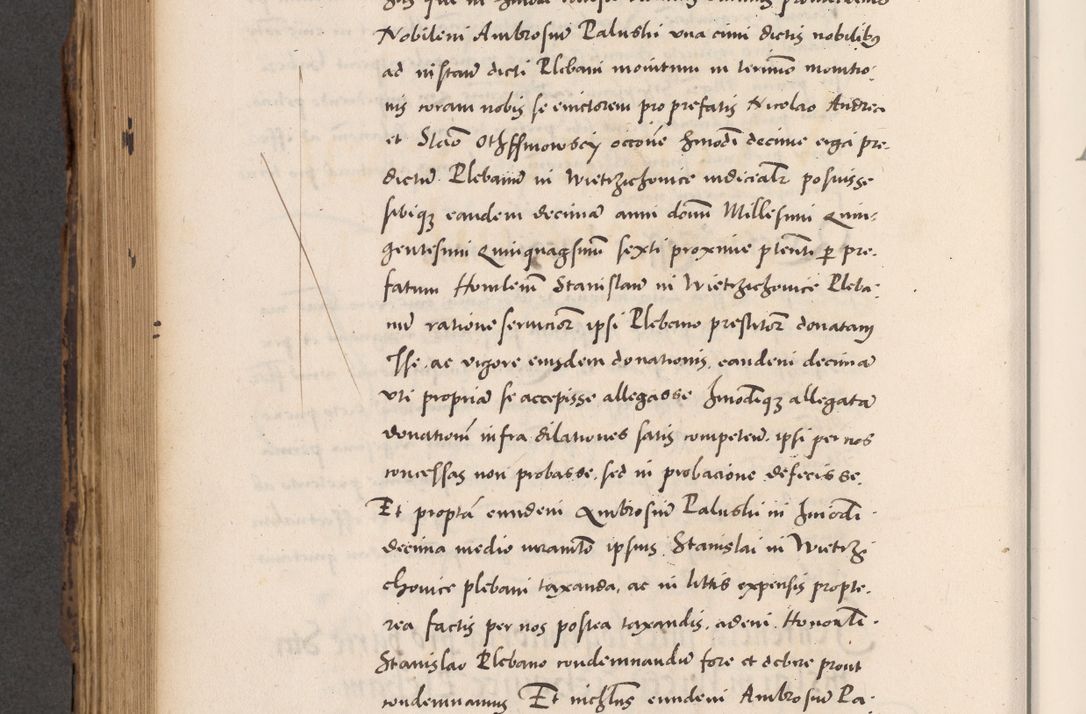 Nobilem Ambrosiũ Palushi una cum dictis nobilibꝫ
ad instanͦ dicti Plebani monitum in termiñ monitio-
nis coram nobis se evictorem pro prefatis Nicolao Andrea
et Stão occõne hmõdi decime erga pre-
dictũ Plebanũ in Wietrzichovice iudicialr posuisse
sibiqꝫ eandem decimã anni domi Millesimi Quin-
gentesimi Quinquagsimi sexti proxime ptenti ꝑ pre-
fatum Honlem Stanislaũ in Wietrzichovice Pleba-
nũ ratione servicior ipsi Plebano prestitor donatam
esse, ac vigore eiusdem donationis, eandem decimã
uti propriã se accepisse allegasse hmõdiqꝫ allegatã
donationẽ infra dilationes satis competen, ipsi per nos
concessas non probasse, sed in probacione defecisse.
Et proptã eundem Ambrosiũ Palushi in hmõdi
decima medio iuramto ipsius Stanislai in Wietrzi
chovice plebani taxanda, ac in littis expensis propte-
rea factis per nos postea taxandis, eidem Honorli
Stanislao Plebano condemnandũ fore et debere prout
condemnamus Et nichlus eundem Ambrosiũ Pa-